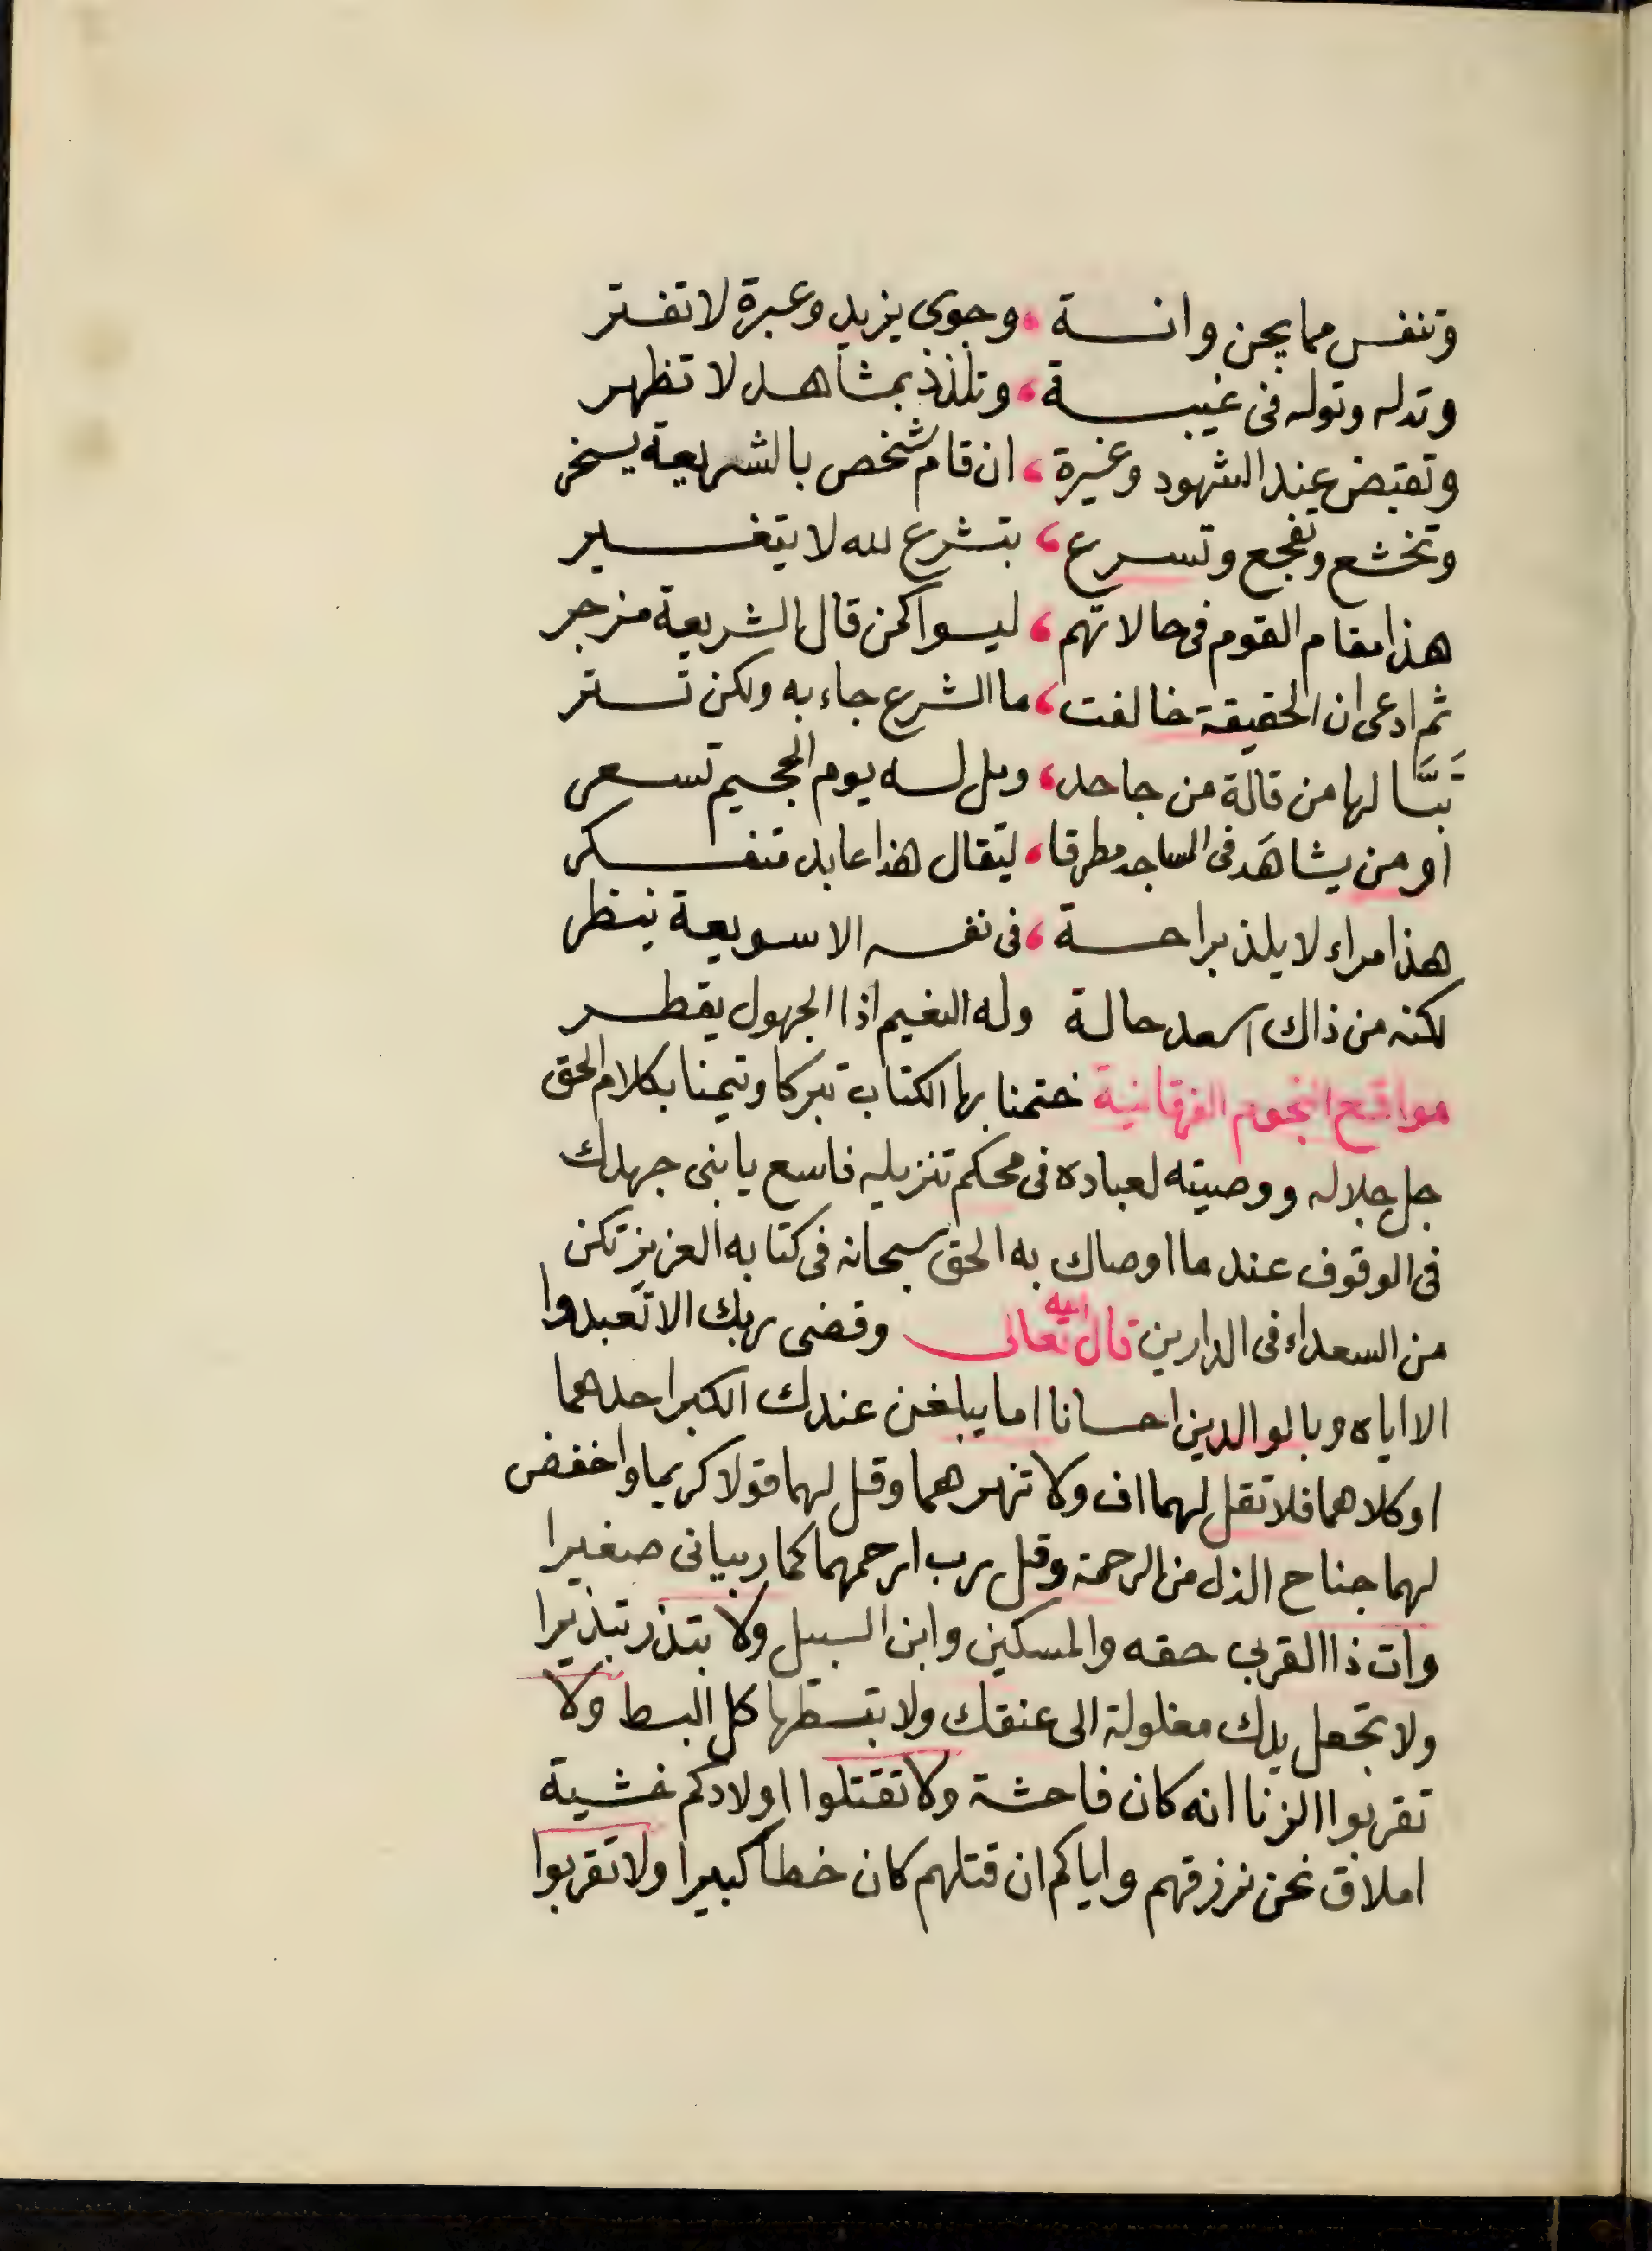 وتنفس مما يجن وانسة ، وجوى يزيد وعبرة لا تفتر
وتدله وتوله فى غيبة ، وتلذذ بمشاهد لا تظهر
وتقبض عند الشهود وغيرة ، ان قام شخص بالشريعة يسخر
وتخشع وتفجع وتسرع ، بتشرع لله لا يتغير
هذا مقام القوم فى حالاتهم ، ليسوا كمن قال الشريعة مزجر
ثم ادعى ان الحقيقة خالفت ، ما الشرع جاء به ولكن تستر
تَبًّا لها من قالة من جاحد ، ويل له يوم الجحيم تسعر
او من يشاهَد فى المساجد مطرقا ، ليقال هذا عابد متفكر
هذا مراء لا يلذ براحة ، فى نفسه الا سويعة ينظر
لكنه من ذاك اسعد حالة وله النعيم اذا الجهول يفطر
مواقع النجوم الفرقانية ختمنا بها الكتاب تبركا وتيمنا بكلام الحق
جل جلاله ووصيته لعباده فى محكم تنزيله فاسع يا بنى جهدك
فى الوقوف عند ما اوصاك به الحق سبحانه فى كتابه العزيز تكن
من السعداء فى الدارين قال الله تعالى وقضى ربك الا تعبدوا
الا اياه وبالوالدين احسانا اما يبلغن عندك الكبر احدهما
او كلاهما فلا تقل لهما اف ولا تنهرهما وقل لهما قولا كريما واخفض
لهما جناح الذل من الرحمة وقل رب ارحمهما كما ربيانى صغيرا
وات ذا القربى حقه والمسكين وابن السبيل ولا تبذر تبذيرا
ولا تجعل يدك مغلولة الى عنقك ولا تبسطها كل البسط ولا
تقربوا الزنا انه كان فاحشة ولا تقتلوا اولادكم خشية
املاق نحن نرزقهم واياكم ان قتلهم كان خطأ كبيرا ولا تقربوا